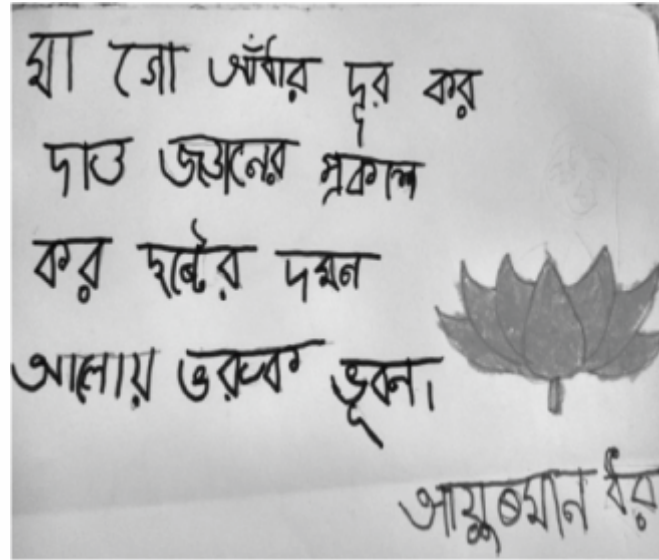 মা গো আঁধার দূর কর
দাও জ্ঞানের প্রকাশ
কর দুষ্টের দমন
আলোয় ভরুক ভূবন।
আয়ুষ্মান ধর